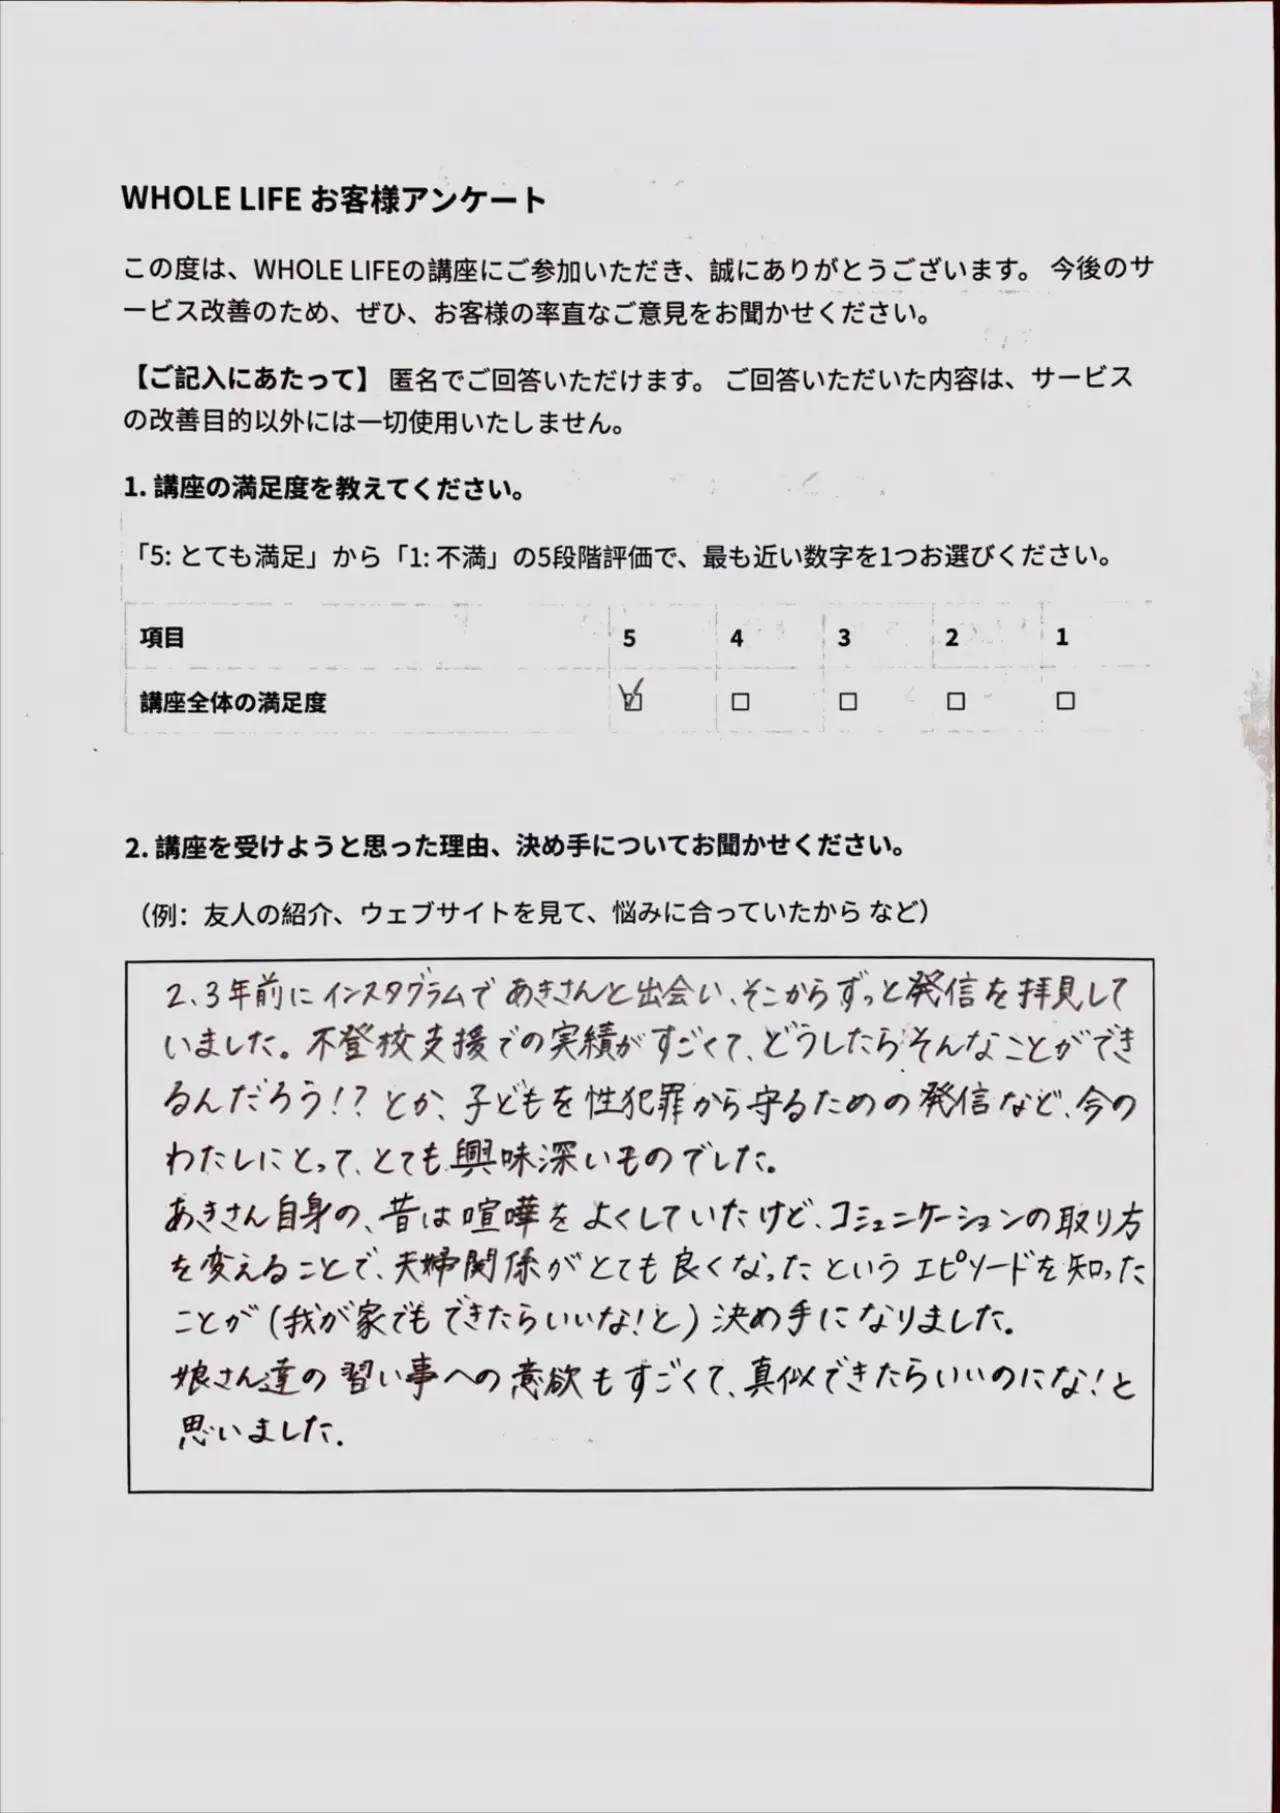 WHOLE LIFE お客様アンケート
この度は、WHOLE LIFEの講座にご参加いただき、誠にありがとうございます。 今後のサ
ービス改善のため、ぜひ、お客様の率直なご意見をお聞かせください。
【ご記入にあたって】 匿名でご回答いただけます。 ご回答いただいた内容は、サービス
の改善目的以外には一切使用いたしません。
1. 講座の満足度を教えてください。
「5: とても満足」から「1: 不満」の5段階評価で、最も近い数字を1つお選びください。
項目 5 4 3 2 1
講座全体の満足度 ☑ □ □ □ □
2. 講座を受けようと思った理由、決め手についてお聞かせください。
（例：友人の紹介、ウェブサイトを見て、悩みに合っていたから など）
2、3年前にインスタグラムであきさんと出会い、そこからずっと発信を拝見して
いました。不登校支援での実績がすごくて、どうしたらそんなことができ
るんだろう!?とか、子どもを性犯罪から守るための発信など、今の
わたしにとって、とても興味深いものでした。
あきさん自身の、昔は喧嘩をよくしていたけど、コミュニケーションの取り方
を変えることで、夫婦関係がとても良くなったというエピソードを知った
ことが(我が家でもできたらいいな!と)決め手になりました。
娘さん達の習い事への意欲もすごくて、真似できたらいいのにな!と
思いました。